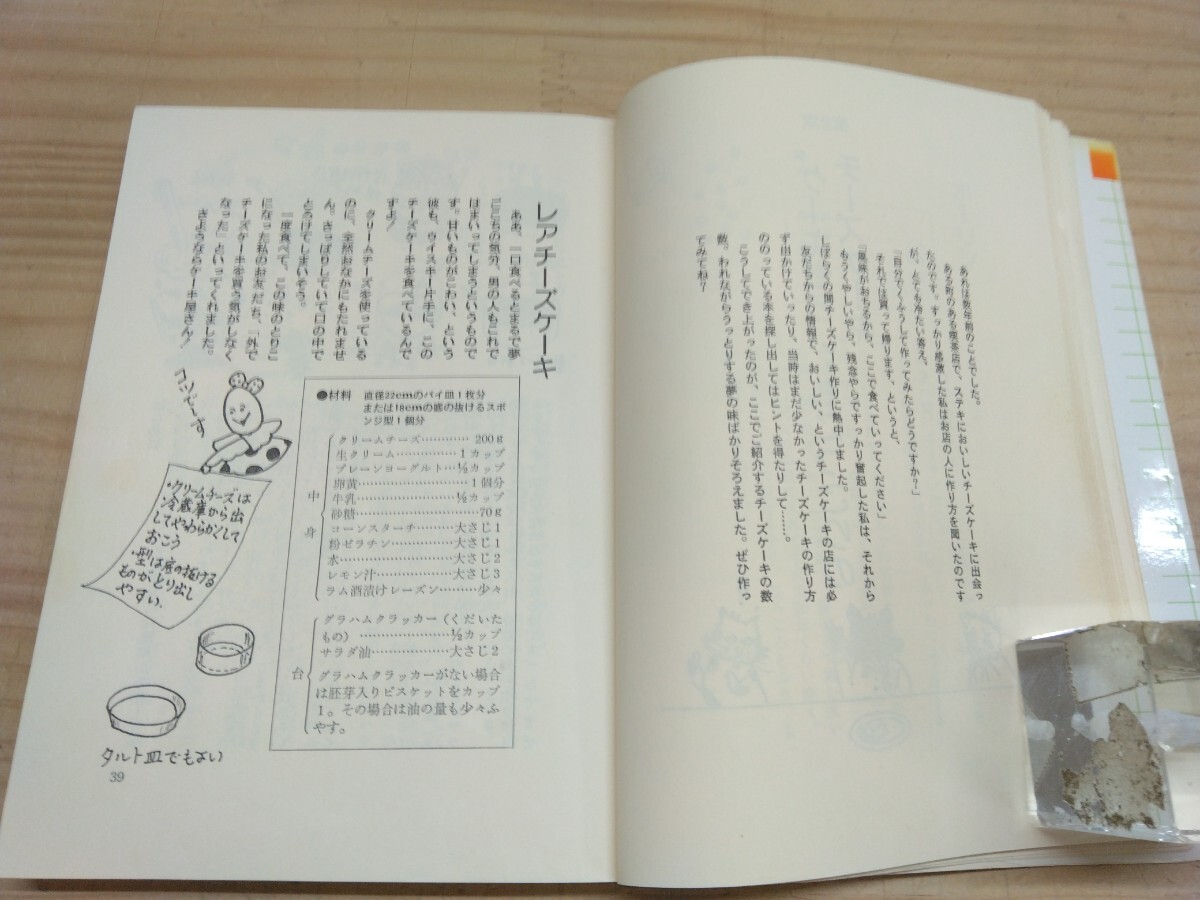 あれは数年前のことでした。
ある町のある喫茶店で、ステキにおいしいチーズケーキに出会っ
たのです。すっかり感激した私はお店の人に作り方を聞いたのです
が、とても冷たい答え。
「自分でくふうして作ってみたらどうですか?」
それでは買って帰ります、というと、
「風味がおちるから。ここで食べていってください」
もうくやしいやら、残念やらですっかり奮起した私は、それから
しばらくの間チーズケーキ作りに熱中しました。
友だちからの情報で、おいしい、というチーズケーキの店には必
ず出かけていったり、当時はまだ少なかったチーズケーキの作り方
ののっている本を探し出してはヒントを得たりして……。
こうしてでき上がったのが、ここでご紹介するチーズケーキの数
数。われながらうっとりする夢の味ばかりそろえました。ぜひ作っ
てみてね?
レアチーズケーキ
ああ、一口食べるとまるで夢
ここちの気分、男の人もこれで
はまいってしまうというもので
す。甘いものがこわい、という
彼も、ウイスキー片手に、この
チーズケーキを食べているんで
すよ!
クリームチーズを使っている
のに、全然おなかにもたれませ
ん。さっぱりしていて口の中で
とろけてしまいそう。
一度食べて、この味のとりこ
になった私のお友だち、「外で
チーズケーキを買う気がしなく
なった」といってくれました。
さようならケーキ屋さん!
●材料 直径22cmのパイ皿1枚分
または18cmの底の抜けるスポ
ンジ型1個分
中身
クリームチーズ…………200g
生クリーム……………1カップ
プレーンヨーグルト…½カップ
卵黄……………………1個分
牛乳…………………½カップ
砂糖……………………70g
コーンスターチ………大さじ1
粉ゼラチン……………大さじ1
水………………………大さじ2
レモン汁………………大さじ3
ラム酒漬けレーズン………少々
台
グラハムクラッカー(くだいた
もの) ………………½カップ
サラダ油………………大さじ2
グラハムクラッカーがない場合
は胚芽入りビスケットをカップ
1。その場合は油の量も少々ふ
やす。
コツどーす
・クリームチーズは
冷蔵庫から出
してやわらかくして
おこう
・型は底の抜ける
ものがとり出し
やすい.
タルト皿でもよい
39